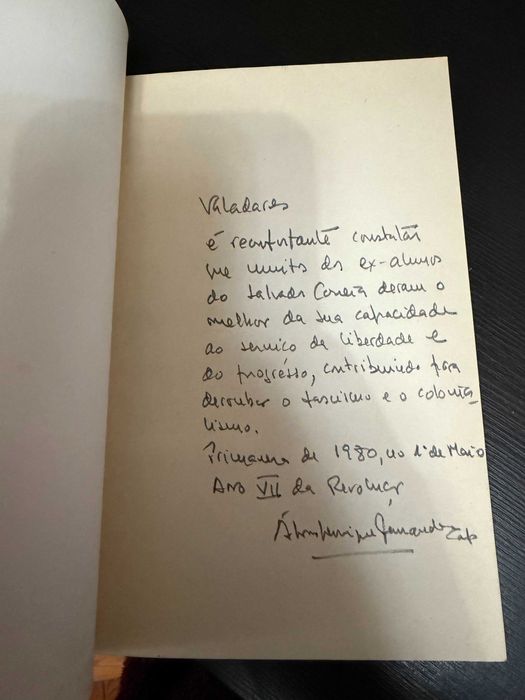 Valadares
é reconfortante constatar
que muitos dos ex-alunos
do Salvador Correia deram o
melhor da sua capacidade
ao serviço da liberdade e
do progrésso, contribuindo para
derrubar o fascismo e o colonia_
lismo.
Primavera de 1980, no 1º de Maio
Ano VII da Revolução
Fernandes